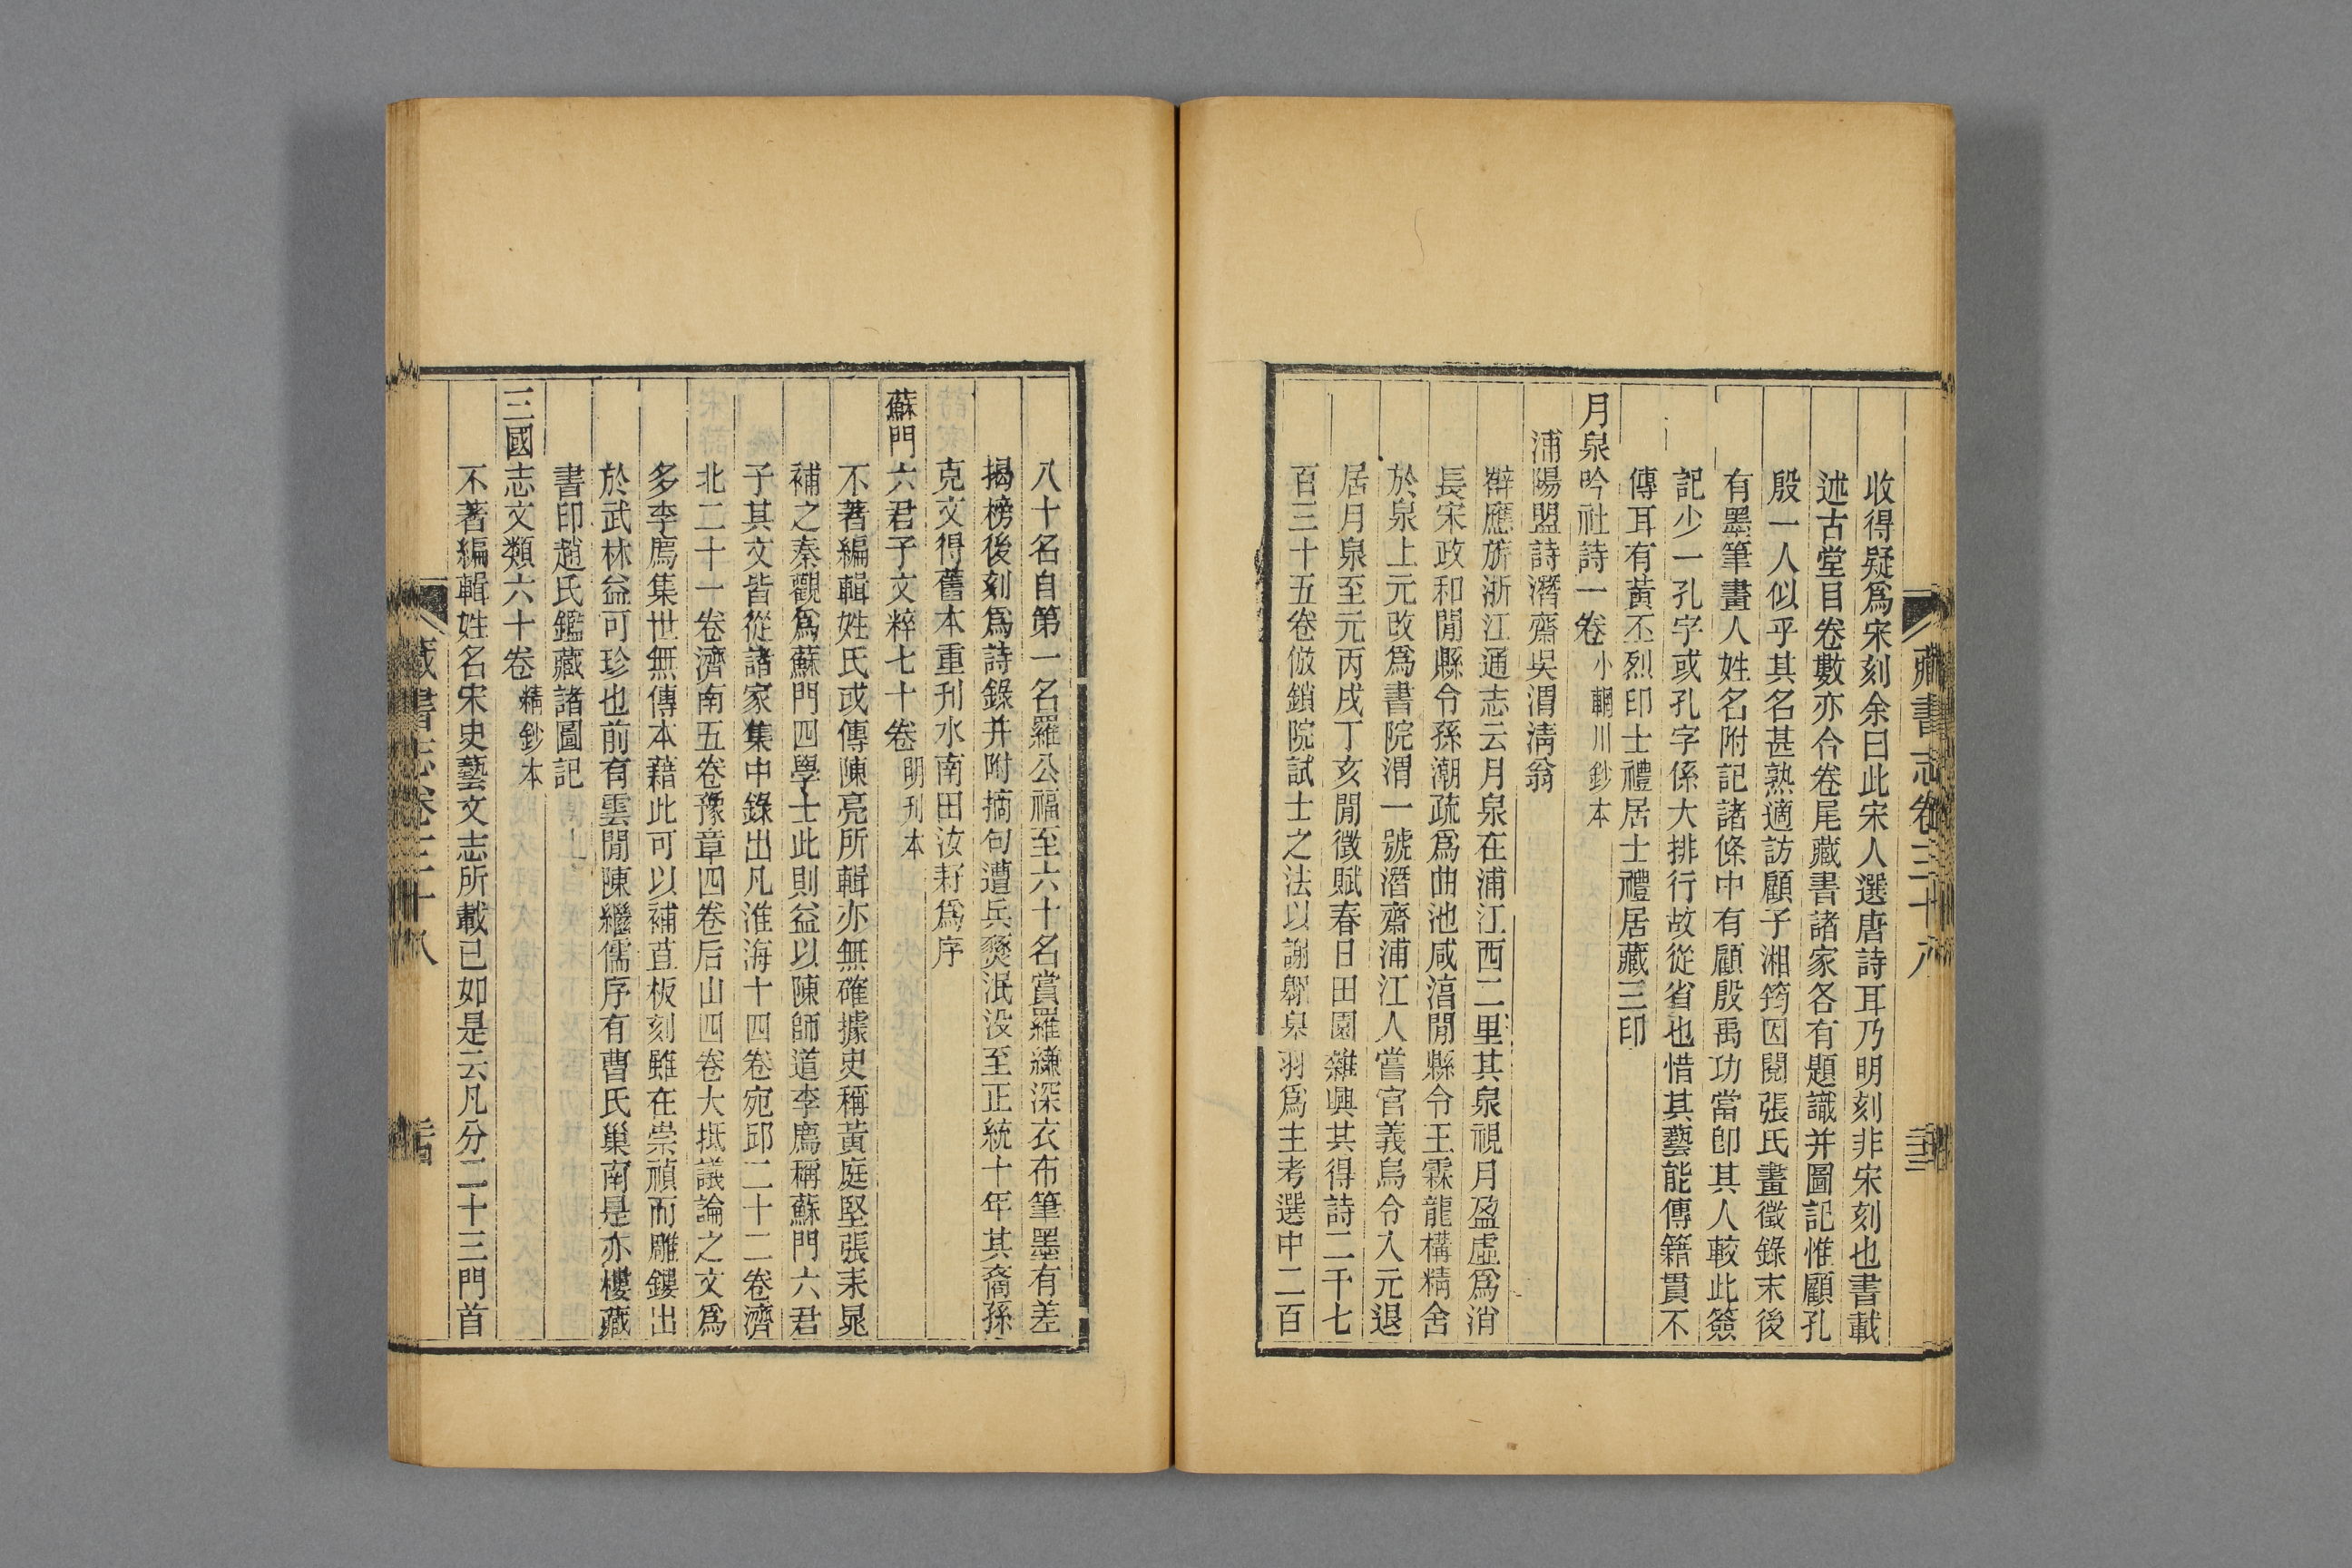 藏書志卷三十八
收得疑爲宋刻余曰此宋人選唐詩耳乃明刻非宋刻也書載
述古堂目卷數亦合卷尾藏書諸家各有題識并圖記惟顧孔
殷一人似乎其名甚熟適訪顧子湘筠因閱張氏畫徵錄末後
有墨筆畫人姓名附記諸條中有顧殷禹功當卽其人較此簽
記少一孔字或孔字係大排行故從省也惜其藝能傳籍貫不
傳耳有黃丕烈印士禮居士禮居藏三印
月泉吟社詩一卷 小輞川鈔本
浦陽盟詩潛齋吳渭清翁
辭應旂浙江通志云月泉在浦江西二里其泉視月盈虛爲消
長宋政和閒縣令孫潮疏爲曲池咸淳閒縣令王霖龍構精舍
於泉上元改爲書院渭一號潛齋浦江人嘗官義烏令入元退
居月泉至元丙戌丁亥閒徵賦春日田園雜興其得詩二千七
百三十五卷倣鎖院試士之法以謝翺皋羽爲主考選中二百
八十名自第一名羅公福至六十名賞羅縑深衣布筆墨有差
揭榜後刻爲詩錄并附摘句遭兵燹泯没至正統十年其裔孫
克文得舊本重刊水南田汝耔爲序
蘇門六君子文粹七十卷 明刊本
不著編輯姓氏或傳陳亮所輯亦無確據史稱黃庭堅張耒晁
補之秦觀爲蘇門四學士此則益以陳師道李廌稱蘇門六君
子其文皆從諸家集中錄出凡淮海十四卷宛邱二十二卷濟
北二十一卷濟南五卷豫章四卷后山四卷大抵議論之文爲
多李廌集世無傳本藉此可以補苴板刻雖在崇禎而雕鏤出
於武林益可珍也前有雲閒陳繼儒序有曹氏巢南是亦樓藏
書印趙氏鑑藏諸圖記
三國志文類六十卷 精鈔本
不著編輯姓名宋史藝文志所載已如是云凡分二十三門首
藏書志卷三十八